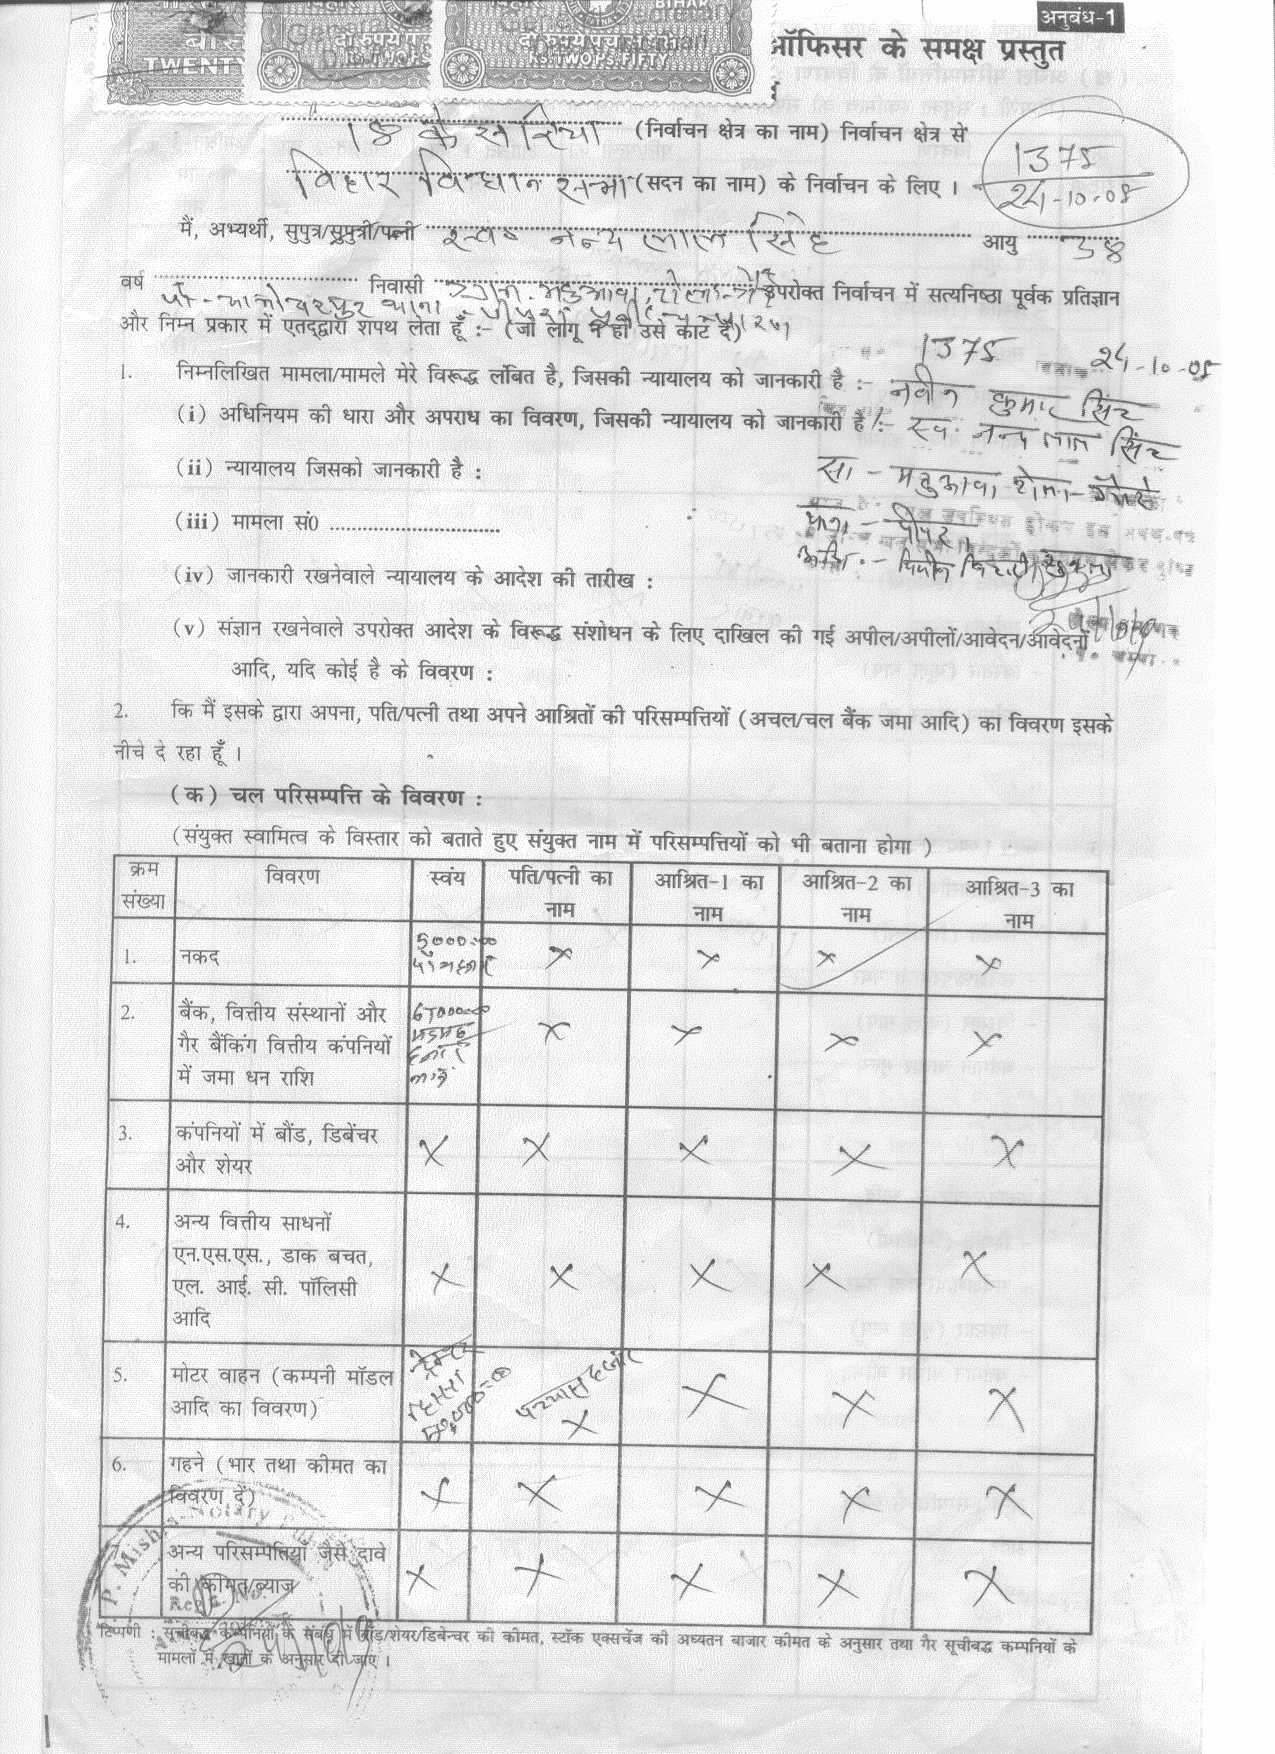 अनुबंध-1
BIHAR
TWENTY
RS.TWO Ps.FIFTY
ऑफिसर के समक्ष प्रस्तुत
18 केसरिया (निर्वाचन क्षेत्र का नाम) निर्वाचन क्षेत्र से
1375
24-10-05
बिहार विधान सभा (सदन का नाम) के निर्वाचन के लिए ।
मैं, अभ्यर्थी, सुपुत्र/सुपुत्री/पत्नी स्व० नन्द लाल सिंह आयु 38
वर्ष निवासी उपरोक्त निर्वाचन में सत्यनिष्ठा पूर्वक प्रतिज्ञान
और निम्न प्रकार में एतद्द्वारा शपथ लेता हूँ :- (जो लागू न हो उसे काट दें)
1375 24-10-05
1. निम्नलिखित मामला/मामले मेरे विरूद्ध लंबित है, जिसकी न्यायालय को जानकारी है :- नवीन कुमार सिंह
(i) अधिनियम की धारा और अपराध का विवरण, जिसकी न्यायालय को जानकारी है :- स्व. नन्द लाल सिंह
(ii) न्यायालय जिसको जानकारी है :
सा -
(iii) मामला सं0
थाना - पीपरा
(iv) जानकारी रखनेवाले न्यायालय के आदेश की तारीख :
(v) संज्ञान रखनेवाले उपरोक्त आदेश के विरूद्ध संशोधन के लिए दाखिल की गई अपील/अपीलों/आवेदन/आवेदनों
आदि, यदि कोई है के विवरण :
2. कि मैं इसके द्वारा अपना, पति/पत्नी तथा अपने आश्रितों की परिसम्पत्तियों (अचल/चल बैंक जमा आदि) का विवरण इसके
नीचे दे रहा हूँ ।
(क) चल परिसम्पत्ति के विवरण :
(संयुक्त स्वामित्व के विस्तार को बताते हुए संयुक्त नाम में परिसम्पत्तियों को भी बताना होगा )
क्रम संख्या विवरण स्वंय पति/पत्नी का नाम आश्रित-1 का नाम आश्रित-2 का नाम आश्रित-3 का नाम
1. नकद 5000=00 x x x x
पाँच हजार
2. बैंक, वित्तीय संस्थानों और x x x x
गैर बैंकिंग वित्तीय कंपनियों
में जमा धन राशि
3. कंपनियों में बौंड, डिबेंचर x x x x x
और शेयर
4. अन्य वित्तीय साधनों
एन.एस.एस., डाक बचत, x x x x x
एल. आई. सी. पॉलिसी
आदि
5. मोटर वाहन (कम्पनी मॉडल पच्चास हजार x x x x
आदि का विवरण)
6. गहने (भार तथा कीमत का x x x x x
विवरण दें)
अन्य परिसम्पत्तियाँ जैसे दावे x x x x x
की कीमत/ब्याज
P. Mishra Notary
टिप्पणी : सूचीबद्ध कम्पनियों के संबंध में बौंड/शेयर/डिबेन्चर की कीमत, स्टॉक एक्सचेंज की अध्यतन बाजार कीमत के अनुसार तथा गैर सूचीबद्ध कम्पनियों के
मामलों में खातों के अनुसार दी जाए ।